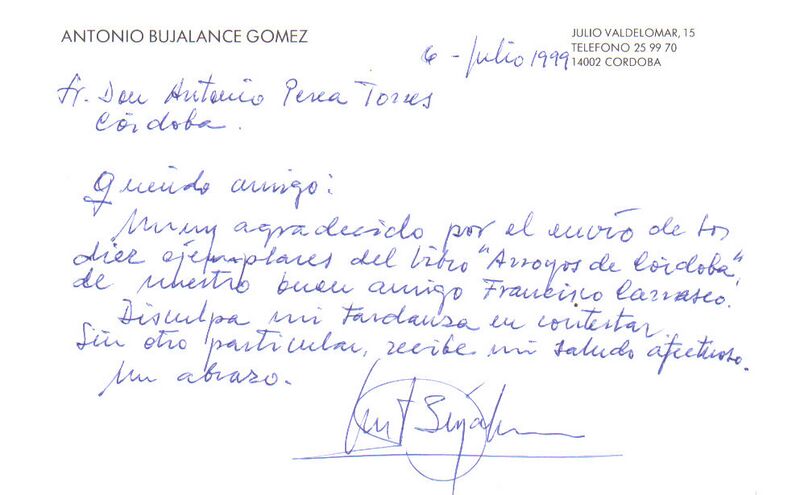 ANTONIO BUJALANCE GOMEZ
JULIO VALDELOMAR, 15
TELEFONO 25 99 70
14002 CORDOBA
6 - Julio 1999
Sr. Don Antonio Perea Torres
Córdoba.
Querido amigo:
Muy agradecido por el envío de los
diez ejemplares del libro "Arroyos de Córdoba",
de nuestro buen amigo Francisco Carrasco.
Disculpa mi tardanza en contestar.
Sin otro particular, recibe mi saludo afectuoso.
Un abrazo.